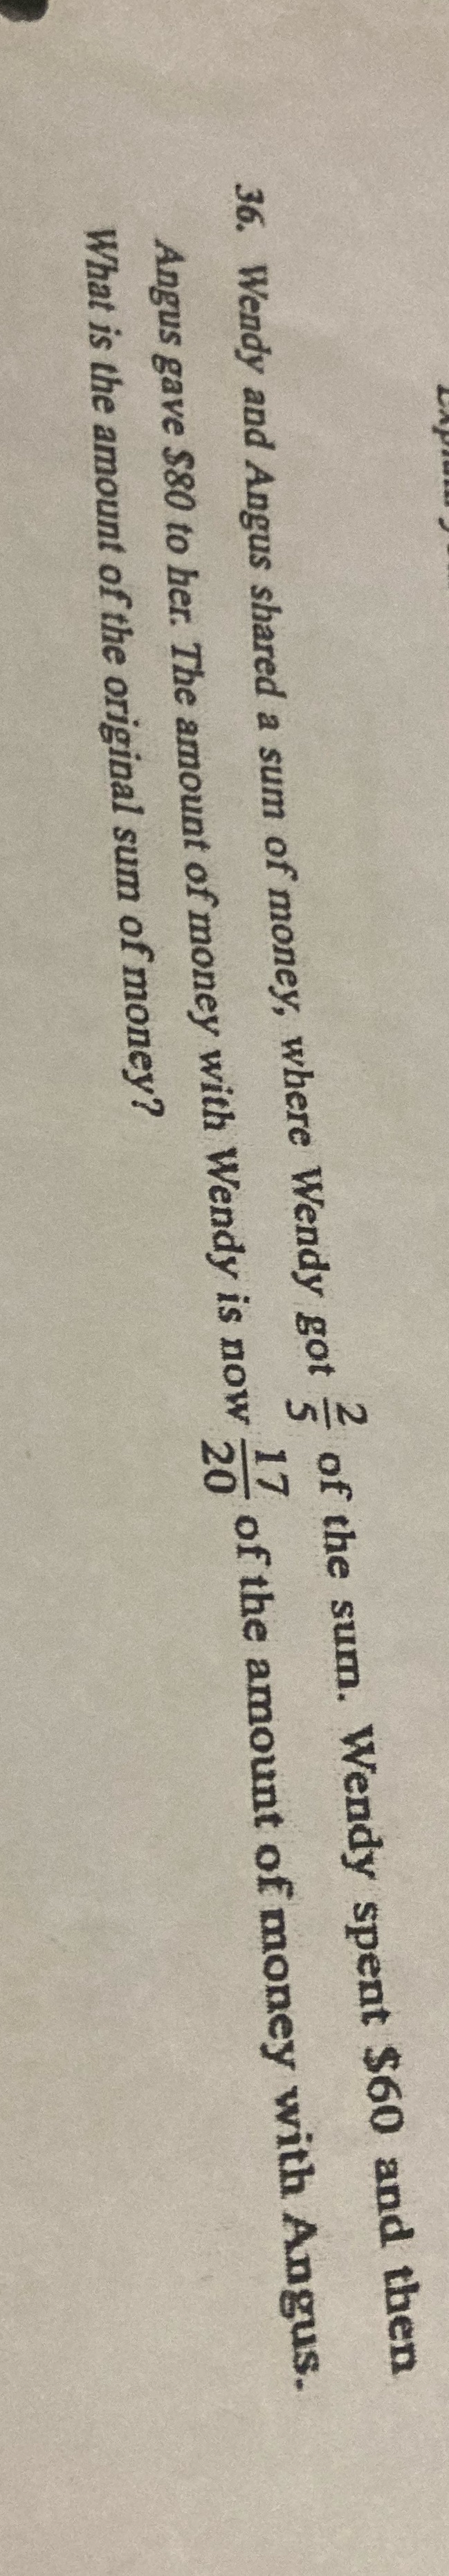 36. Wendy and Angus shared a sum of money, where Wendy got 2/5 of the sum. Wendy spent $60 and then
Angus gave $80 to her. The amount of money with Wendy is now 17/20 of the amount of money with Angus.
What is the amount of the original sum of money?